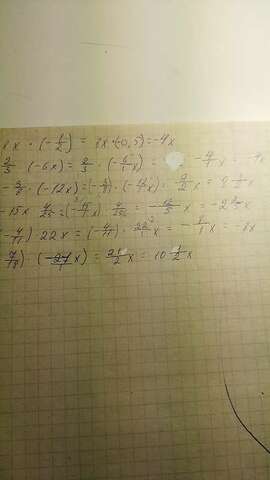 8x · (-1/2) = 8x · (-0,5) = -4x
2/3 (-6x) = 2/3 · (-6/1 x) = -4/1 x = -4x
-3/8 · (-12x) = (-3/8) · (-12/1 x) = 9/2 x = 4 1/2 x
-15x 4/25 = (-15/1 x) 4/25 = -12/5 x = -2 2/5 x
(-4/11) 22x = (-4/11) · 22/1 x = -8/1 x = -8x
· (-21/1 x) = 21/2 x = 10 1/2 x